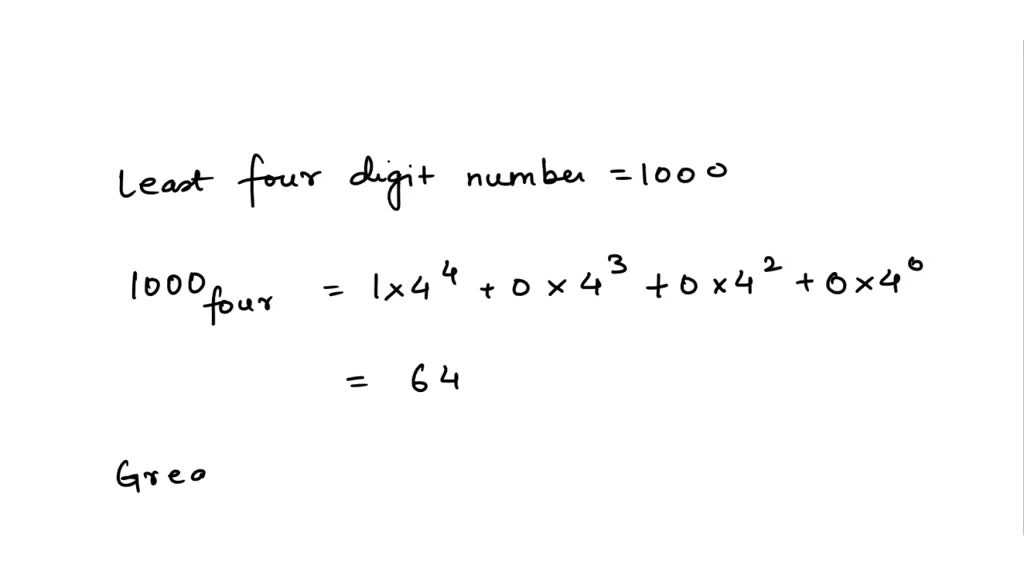 Least four digit number = 1000
1000four = 1×4⁴ + 0×4³ + 0×4² + 0×4⁰
= 64
Grea